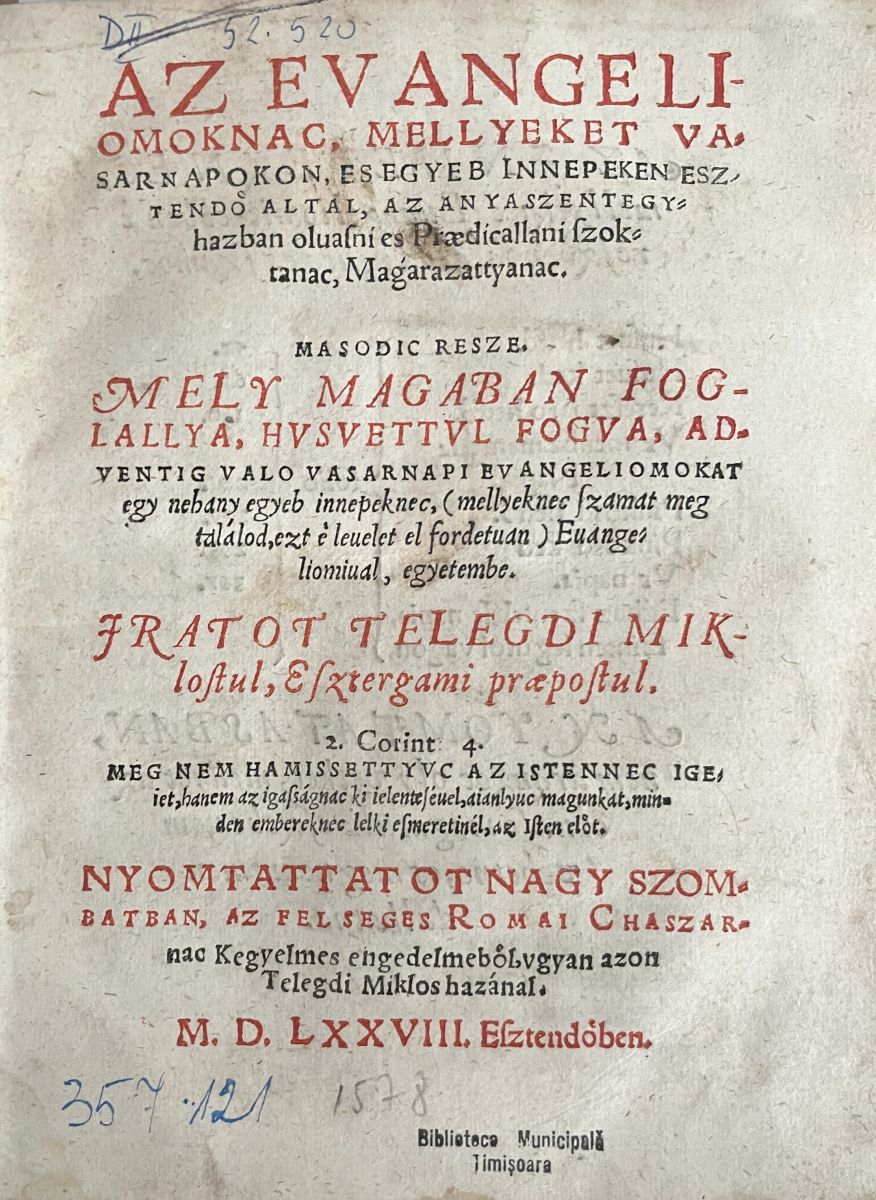 DII 52.520
AZ EVANGELI-
OMOKNAC, MELLYEKET VA-
SARNAPOKON, ES EGYEB INNEPEKEN ESZ-
TENDŐ ALTAL, AZ ANYASZENTEGY-
hazban oluaſni es Prædicallani ſzok-
tanac, Magarazattyanac.
MASODIC RESZE.
MELY MAGABAN FOG-
LALLYA, HVSVETTVL FOGVA, AD-
VENTIG VALO VASARNAPI EVANGELIOMOKAT
egy nehany egyeb innepeknec, (mellyeknec ſzamat meg
talalod, ezt è leuelet el fordetuan) Euange-
liomiual, egyetembe.
IRATOT TELEGDI MIK-
loſtul, Eſztergami præpoſtul.
2. Corint 4.
MEG NEM HAMISSETTYVC AZ ISTENNEC IGE-
iet, hanem az igaſságnac ki ielenteſéuel, aianlyuc magunkat, min-
den embereknec lelki eſmeretinél, az Iſten elöt.
NYOMTATTATOT NAGY SZOM-
BATBAN, AZ FELSEGES ROMAI CHASZAR-
nac Kegyelmes engedelmeböl, vgyan azon
Telegdi Miklos hazánal.
M. D. LXXVIII. Eſztendöben.
357.121 1578
Biblioteca Municipală
Timișoara